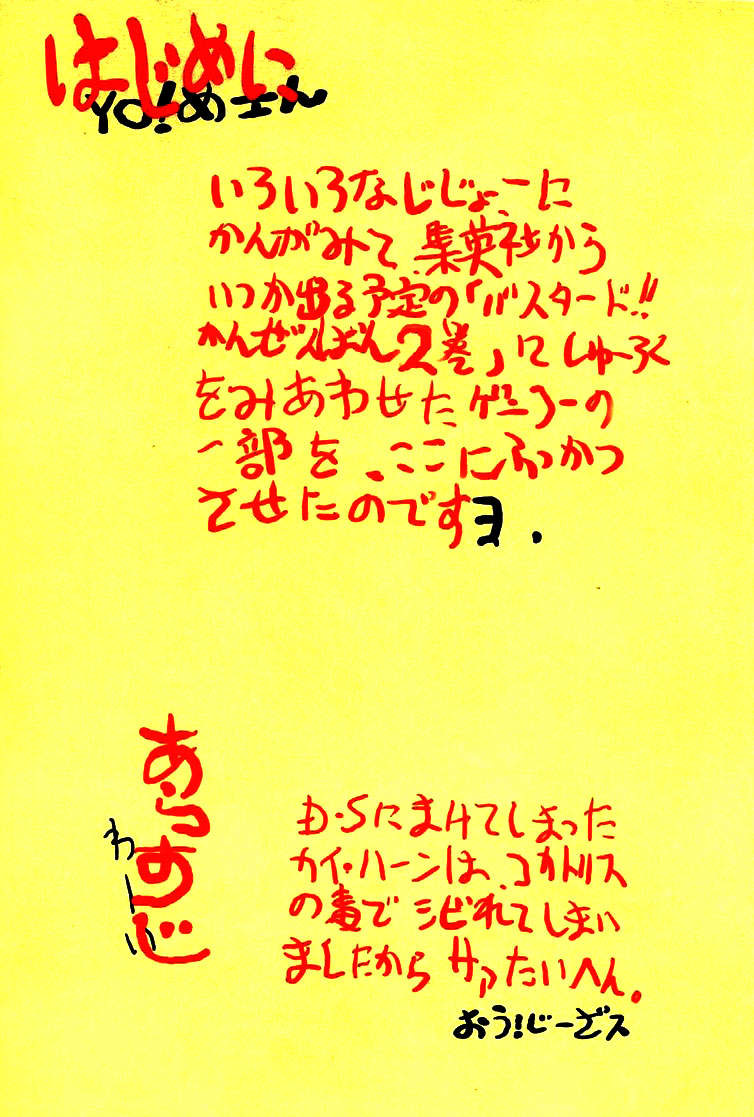 はじめに
YO!めさん
いろいろなじじょーに
かんがみて、集英社から
いつか出る予定の「バスタード!!
かんぜんばん2巻」にしゅーろく
をみあわせたゲンコーの
一部を、ここにふっかつ
させたのですヨ.
あらすじ
D・Sにまけてしまった
カイ・ハーンは、コカトリス
の毒でシビれてしまい
ましたからサアたいへん。
おう!じーざス